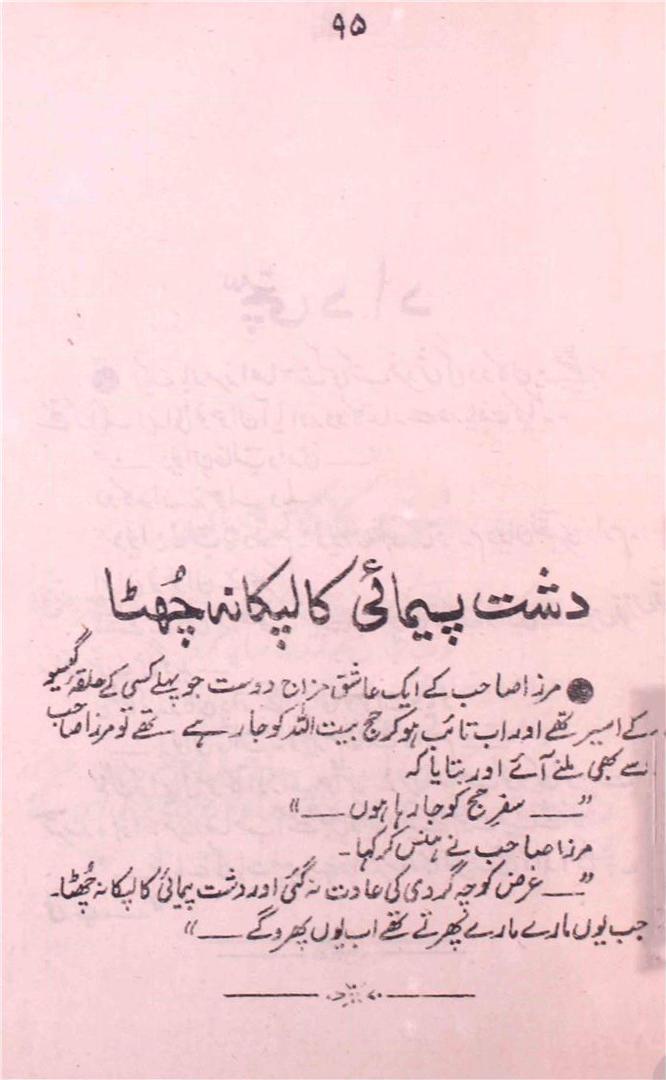 ۹۵
دشت پیمائی کا لپکا نہ چُھٹا
● مرزا صاحب کے ایک عاشق مزاج دوست جو پہلے کسی کے حلقۂ گیسو
کے اسیر تھے اور اب تائب ہو کر حج بیت اللہ کو جا رہے تھے تو مرزا صاحب
سے بھی ملنے آئے اور بتایا کہ
”— سفرِ حج کو جا رہا ہوں —“
مرزا صاحب نے ہنس کر کہا۔
”— غرض کوچہ گردی کی عادت نہ گئی اور دشت پیمائی کا لپکا نہ چُھٹا۔
جب یوں مارے مارے پھرتے تھے اب یوں پھرو گے —“